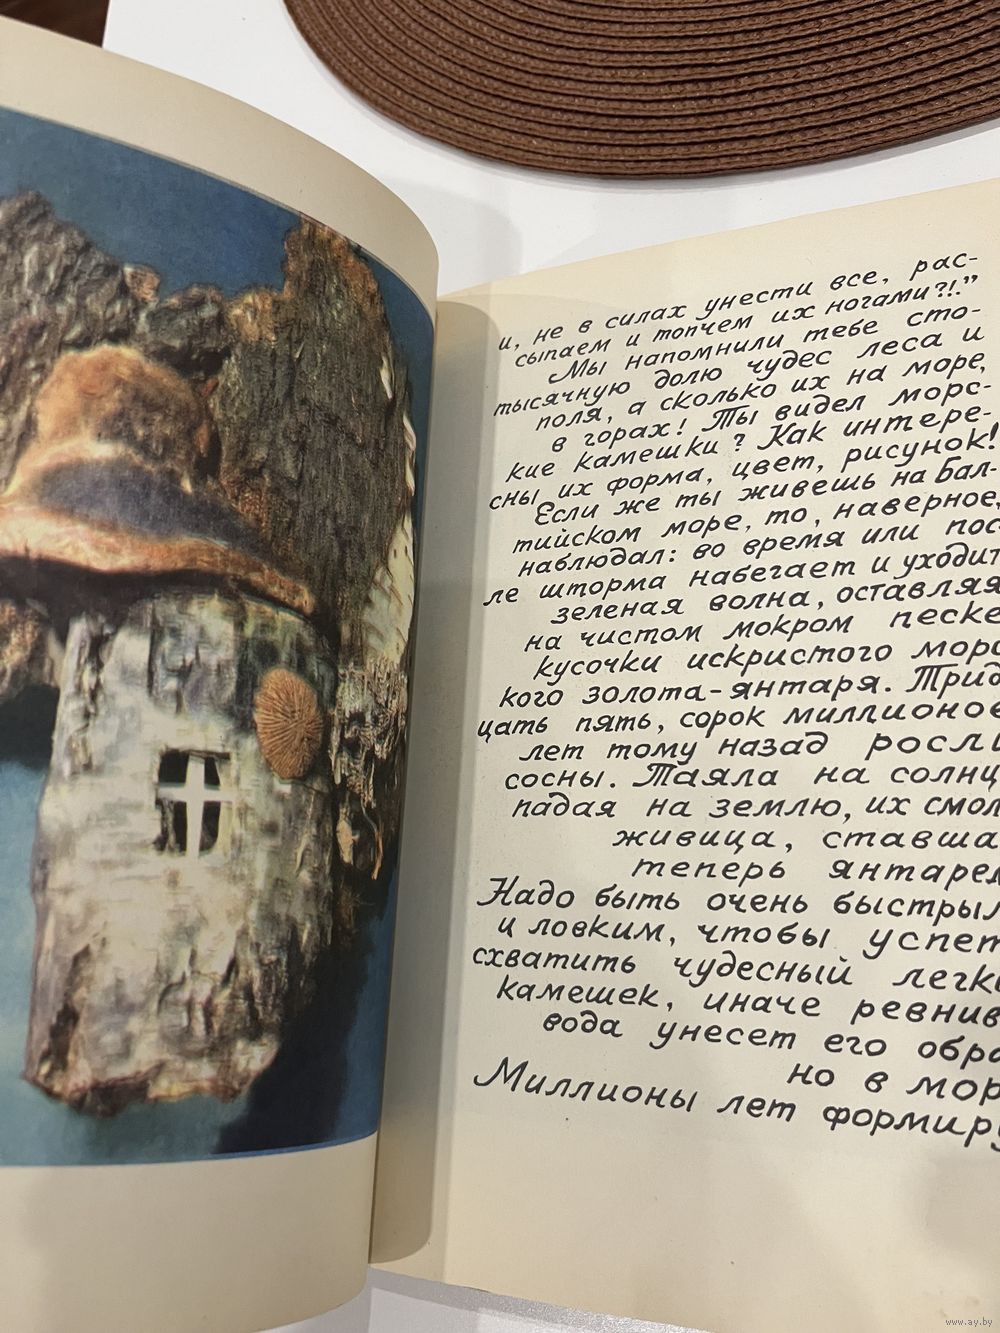 и, не в силах унести все, рас-
сыпаем и топчем их ногами?!."
Мы напомнили тебе сто-
тысячную долю чудес леса и
поля, а сколько их на море,
в горах! Ты видел морс-
кие камешки? Как интере-
сны их форма, цвет, рисунок!
Если же ты живешь на Бал-
тийском море, то, наверное,
наблюдал: во время или пос-
ле шторма набегает и уходит
зеленая волна, оставляя
на чистом мокром песке
кусочки искристого морс
кого золота-янтаря. Трид
цать пять, сорок миллионов
лет тому назад росли
сосны. Таяла на солнц
падая на землю, их смол
живица, ставша
теперь янтарем
Надо быть очень быстрым
и ловким, чтобы успет
схватить чудесный легки
камешек, иначе ревнив
вода унесет его обра
но в мор
Миллионы лет формиру
www.ay.by